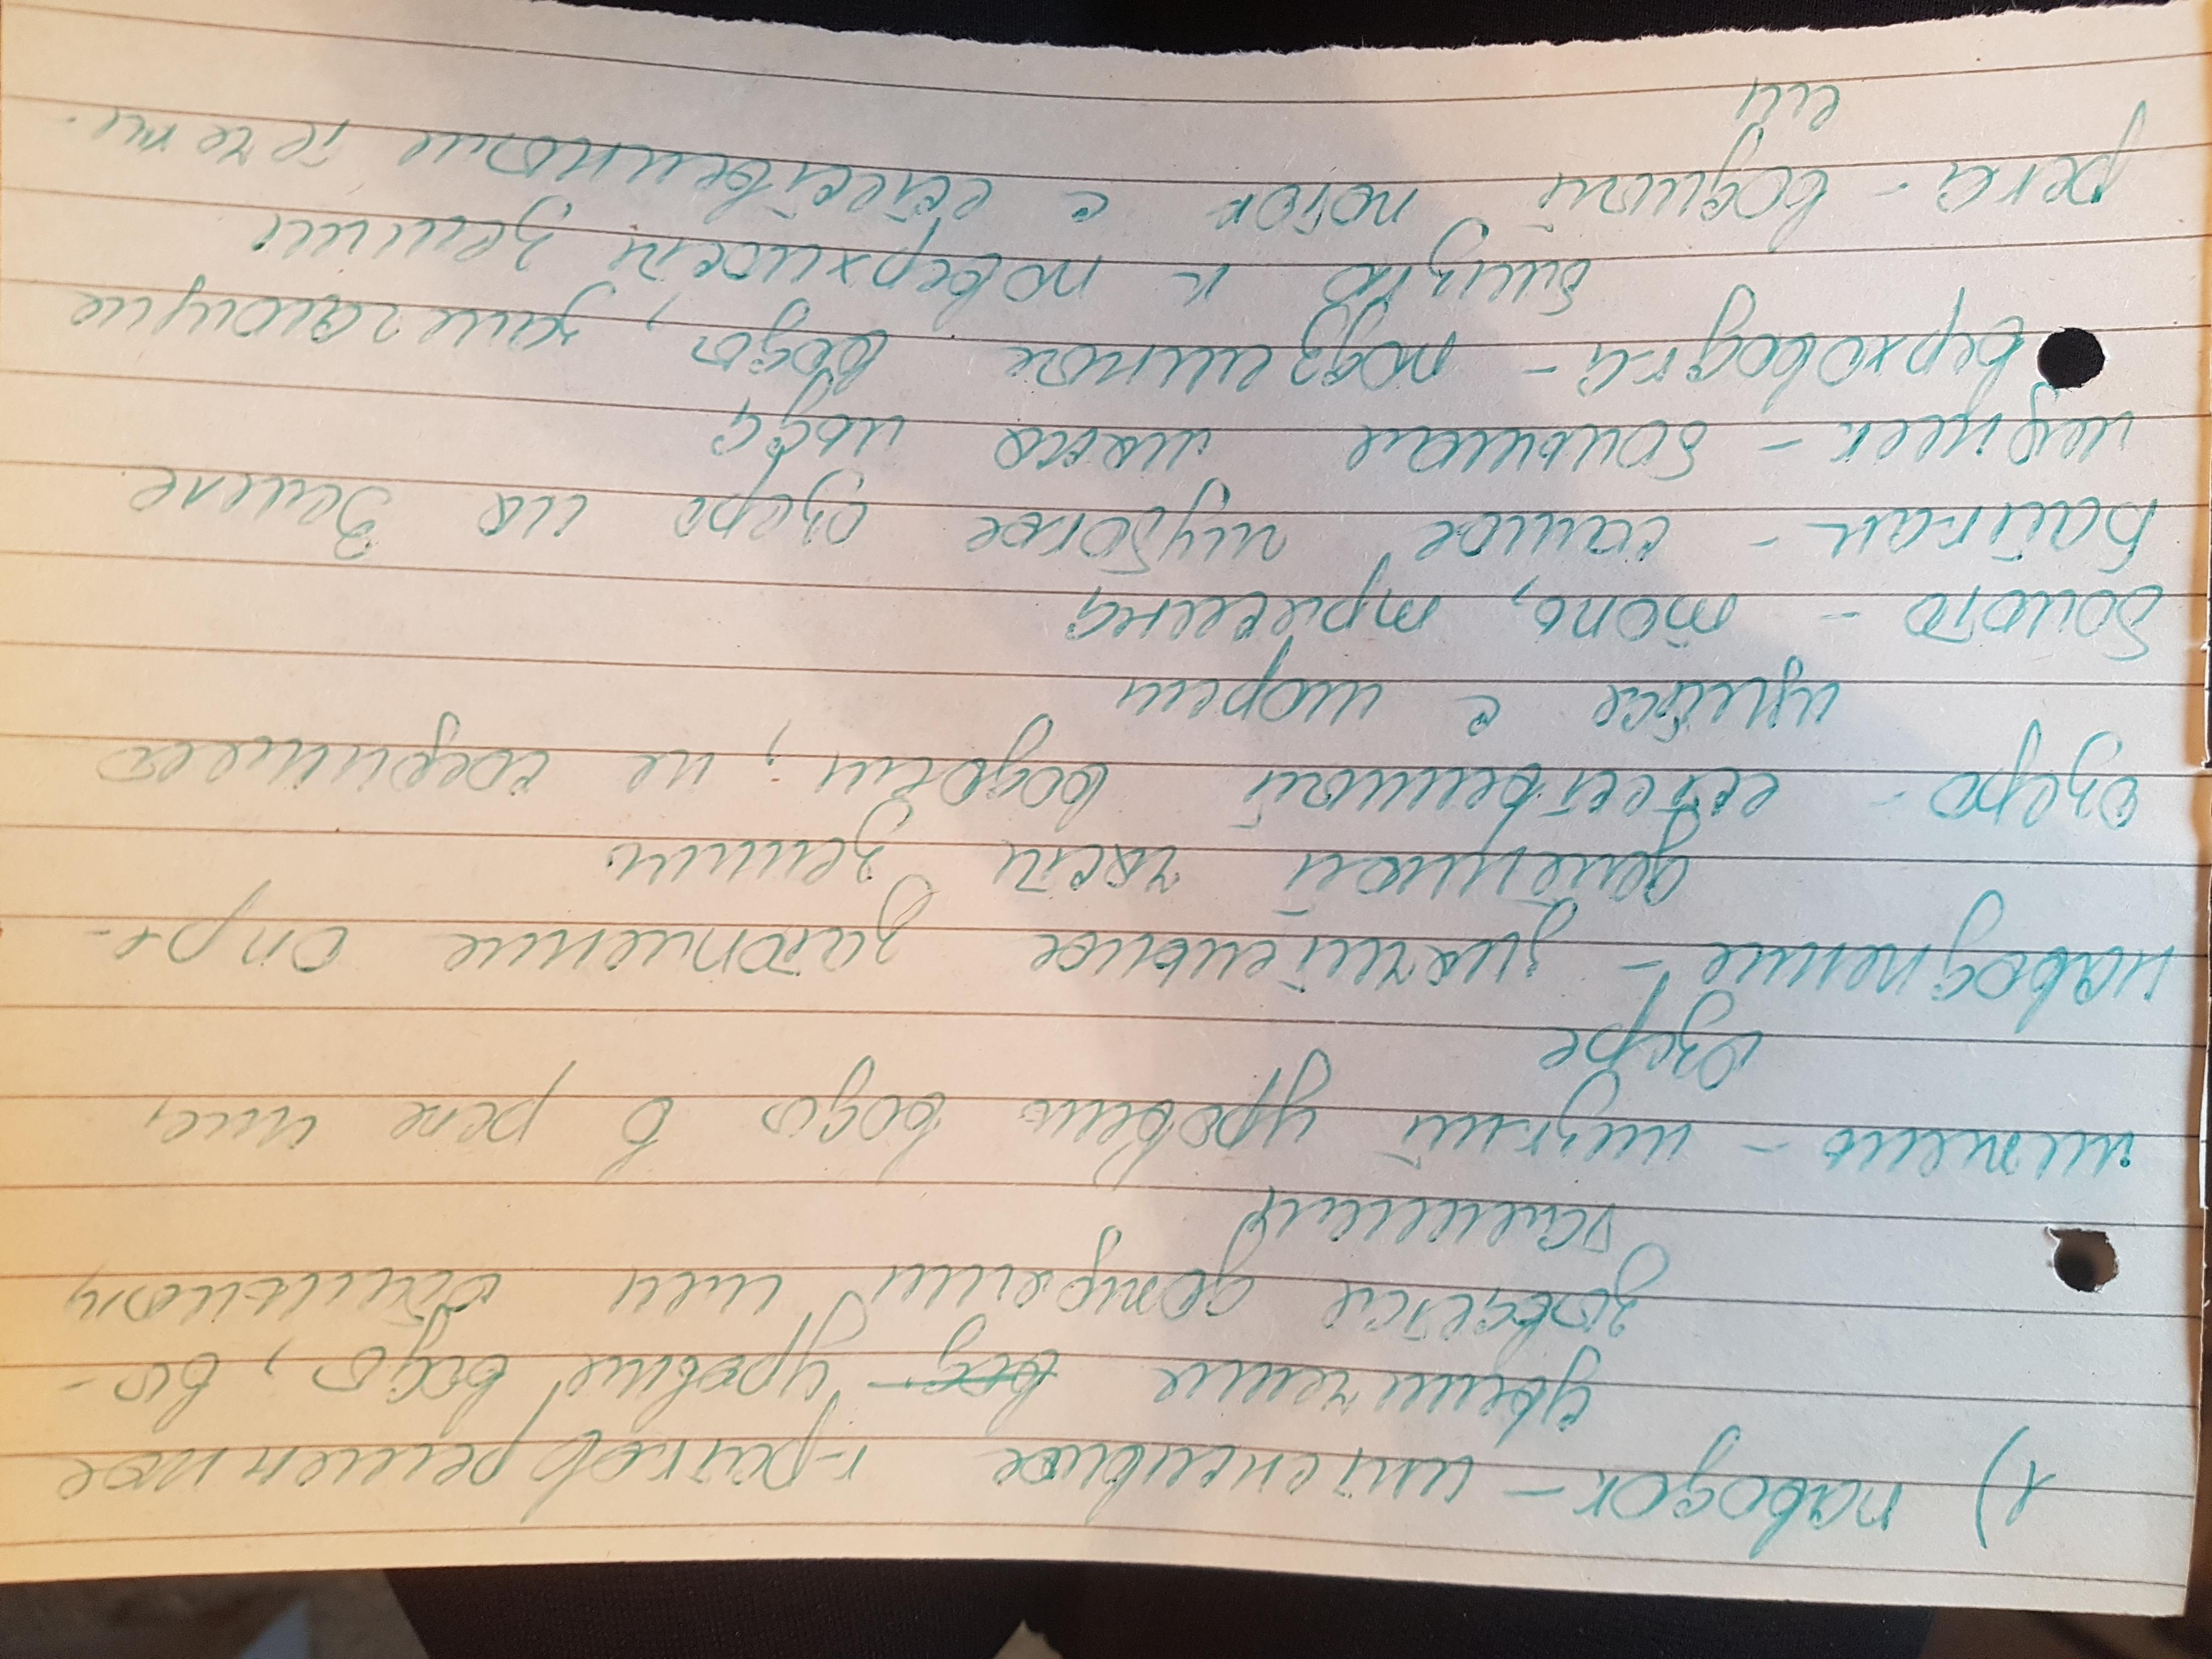 1) паводок - интенсивное кратковременное
увеличение вод- уровне воды, вы-
зывается дождями или обильному
таянию
межень - низкий уровень воды в реке или
озере
наводнение - значительное затопление опре-
делённой части земли
озеро - естественный водоём, не соединяет
ийся с морем
болото - топь, трясина
Байкал - самое глубокое озеро на Земле
ледник - большие масса льда
верховодка - подземные воды, залегающие
близко к поверхности земли
река - водный поток с естественные течени-
ем